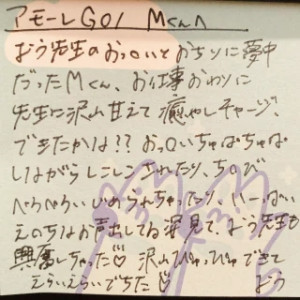 アモーレGO! Mくんへ
よう先生のおっぱいとおちりに夢中
だったMくん、お仕事おわりに
先生に沢山甘えて癒やしチャージ、
できたかは?? おっぱいちゅぱちゅぱ
しながらシコシコされたり、ちのび
ぺろぺろいじめられちゃったり、いーっぱい
えのちはお声出してる深見て、よう先生も
興奮しちゃった♡ 沢山ぴゅっぴゅできて
えらいえらいでちた♡ よう